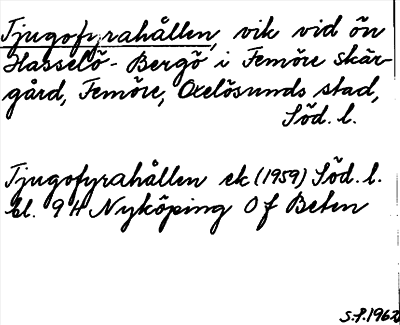 Tjugofyrahållen, vik vid ön
Hasselö-Bergö i Femöre skär-
gård, Femöre, Oxelösunds stad,
Söd. l.
Tjugofyrahållen ek (1959) Söd. l.
bl. 9 H Nyköping O f Beten
S.F. 1962